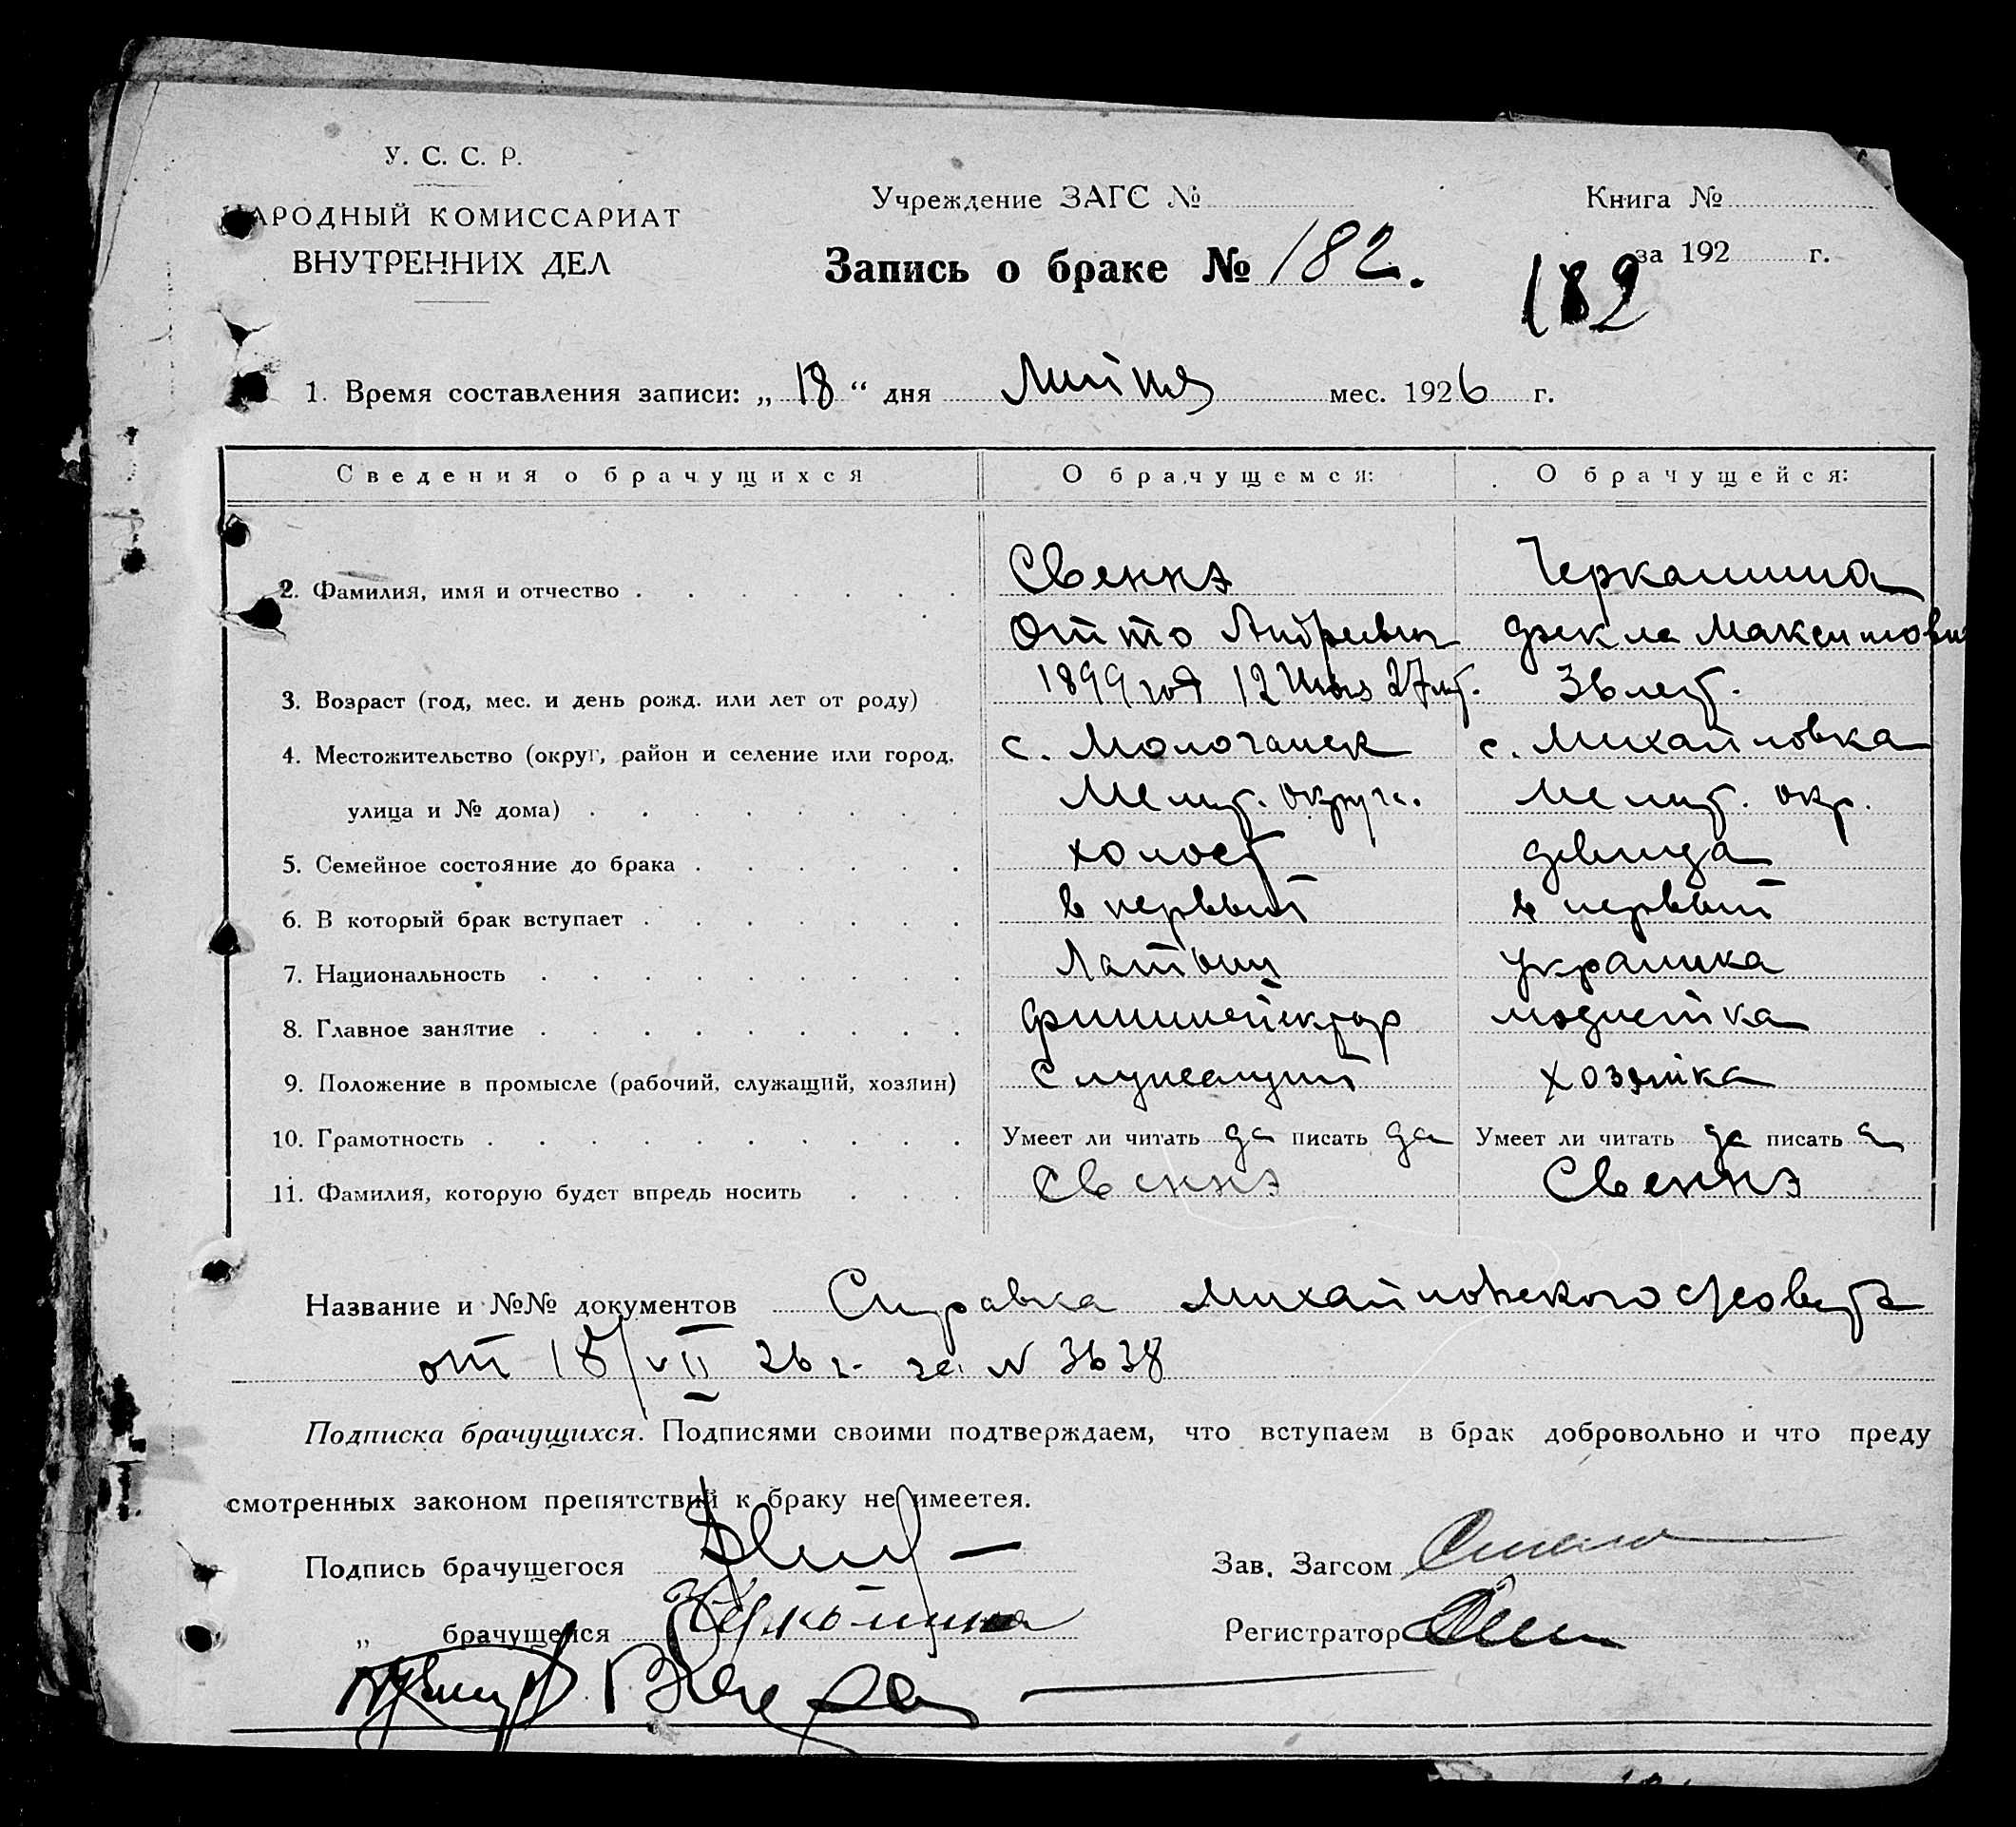 У. С. С. Р.
НАРОДНЫЙ КОМИССАРИАТ
ВНУТРЕННИХ ДЕЛ
Учреждение ЗАГС №
Книга №
за 192 г.
Запись о браке № 182.
182
1. Время составления записи: „ 18 “ дня Липня мес. 1926 г.
Сведения о брачущихся О брачущемся: О брачущейся:
2. Фамилия, имя и отчество Свеннэ
Отто Андреевич Фекла Максимовн
3. Возраст (год, мес. и день рожд. или лет от роду) 1899 год 12 27 лет. 36 лет.
4. Местожительство (округ, район и селение или город, с. Молочанск с. Михайловка
улица и № дома) Мелит. округа. Мелит. окр.
5. Семейное состояние до брака холост девица
6. В который брак вступает в первый в первый
7. Национальность Латыш украинка
8. Главное занятие фининспектор модистка
9. Положение в промысле (рабочий, служащий, хозяин) Служащий хозяйка
10. Грамотность Умеет ли читать да писать да Умеет ли читать да писать да
11. Фамилия, которую будет впредь носить Свеннэ Свеннэ
Название и №№ документов Справка Михайловского с/совета
от 18/VII 26 г. за N 3638
Подписка брачущихся. Подписями своими подтверждаем, что вступаем в брак добровольно и что преду
смотренных законом препятствий к браку не имеется.
Подпись брачущегося
Зав. Загсом
„ брачущейся
Регистратор